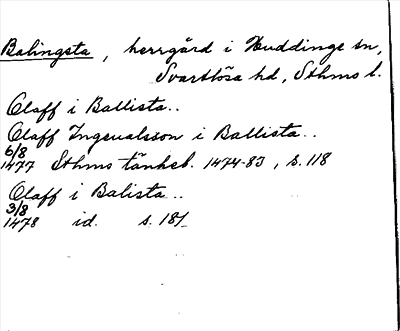 Balingsta, herrgård i Huddinge sn,
Svartlösa hd, Sthms l.
Olaff i Ballista..
Olaff Ingeualsson i Ballista..
6/8
1477 Sthms tänkeb. 1474-83, s. 118
Olaff i Balista..
3/8
1478 id. s. 181